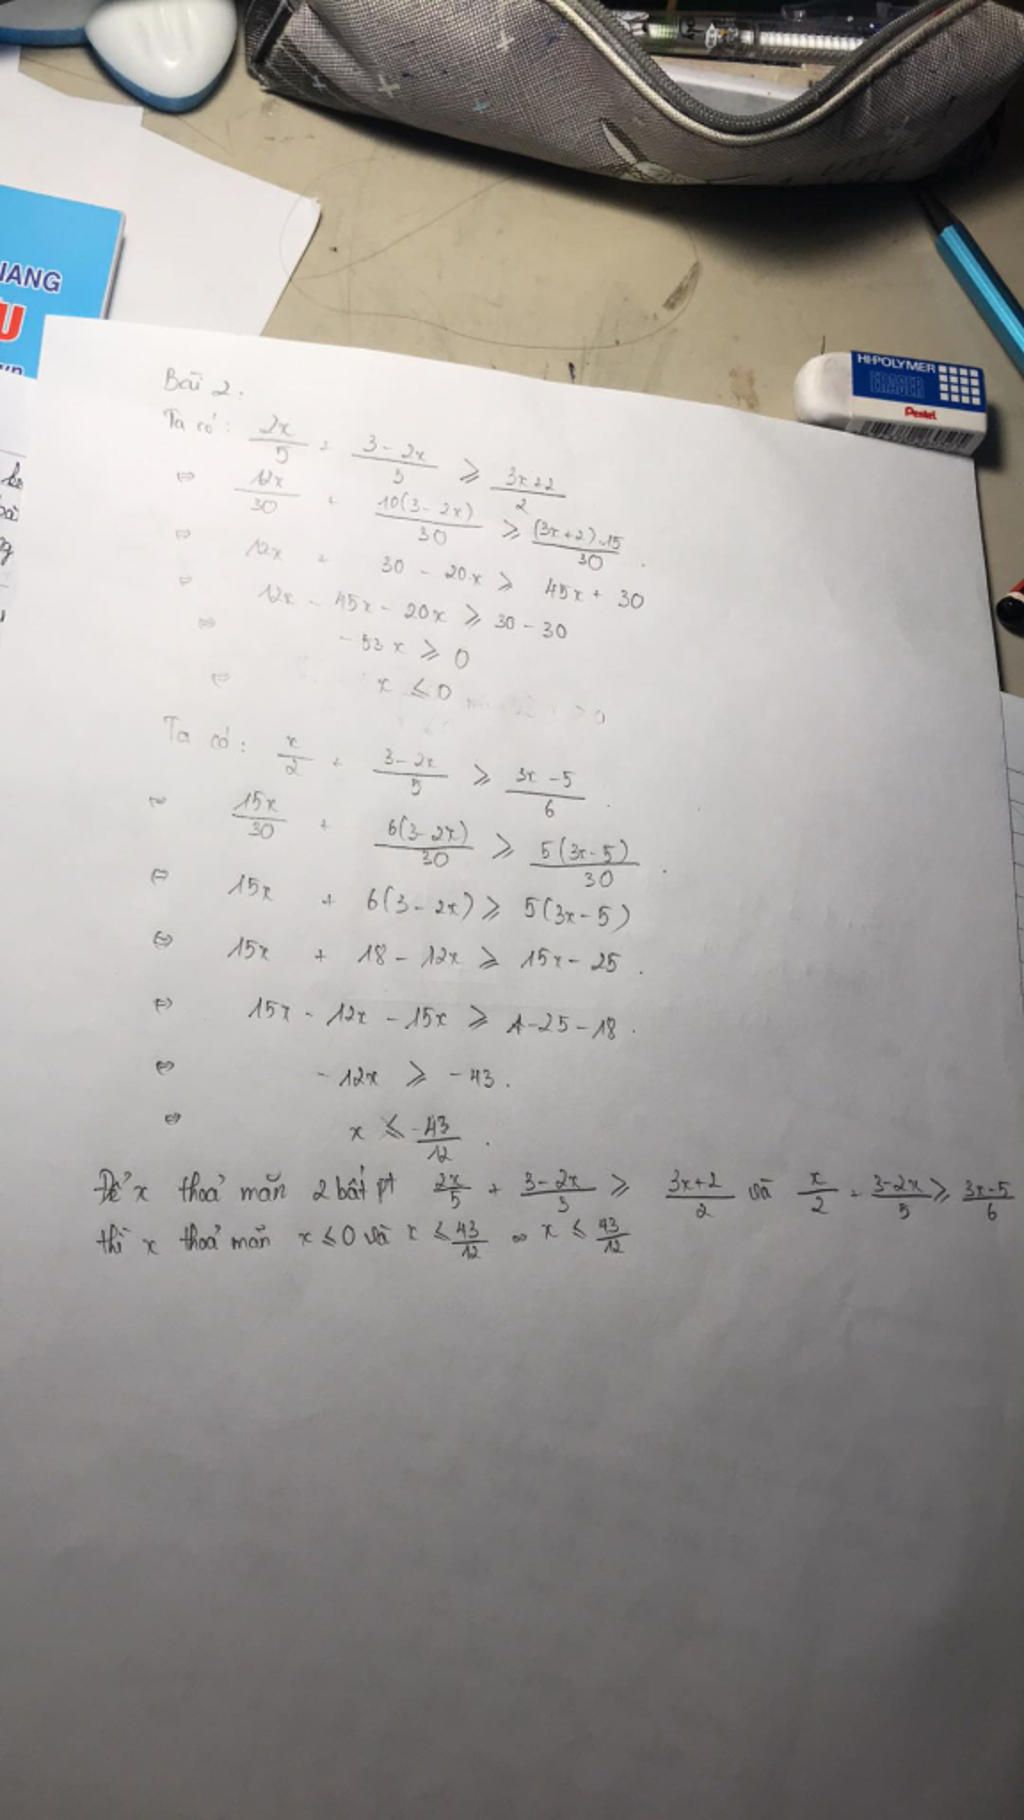 IANG
U
HI-POLYMER
ERASER
Pentel
Bài 2.
Ta có: 2x/5 + (3-2x)/3 ⩾ (3x+2)/2
⇔ 12x/30 + 10(3-2x)/30 ⩾ (3x+2).15/30.
⇔ 12x + 30 - 20x ⩾ 45x + 30
⇔ 12x - 45x - 20x ⩾ 30 - 30
⇔ -53x ⩾ 0
⇔ x ⩽ 0
Ta có: x/2 + (3-2x)/5 ⩾ (3x-5)/6.
⇔ 15x/30 + 6(3-2x)/30 ⩾ 5(3x-5)/30.
⇔ 15x + 6(3-2x) ⩾ 5(3x-5)
⇔ 15x + 18 - 12x ⩾ 15x - 25.
⇔ 15x - 12x - 15x ⩾ -25 - 18.
⇔ -12x ⩾ -43.
⇔ x ⩽ 43/12.
Để x thoả mãn 2 bất pt 2x/5 + (3-2x)/3 ⩾ (3x+2)/2 và x/2 + (3-2x)/5 ⩾ (3x-5)/6
thì x thoả mãn x ⩽ 0 và x ⩽ 43/12 ⇔ x ⩽ 43/12